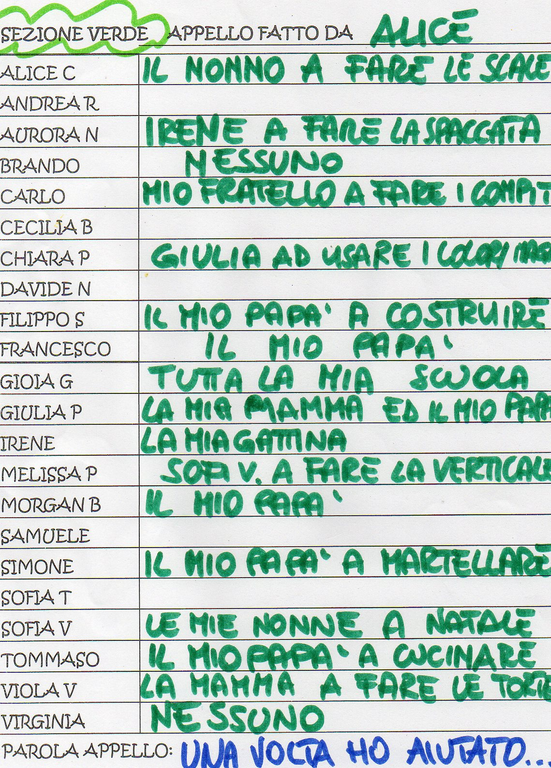 SEZIONE VERDE APPELLO FATTO DA ALICE
ALICE C IL NONNO A FARE LE SCALE
ANDREA R
AURORA N IRENE A FARE LA SPACCATA
BRANDO NESSUNO
CARLO MIO FRATELLO A FARE I COMPIT
CECILIA B
CHIARA P GIULIA AD USARE I COLORI
DAVIDE N
FILIPPO S IL MIO PAPA' A COSTRUIRE
FRANCESCO IL MIO PAPA'
GIOIA G TUTTA LA MIA SCUOLA
GIULIA P LA MIA MAMMA ED IL MIO PAPA
IRENE LA MIA GATTINA
MELISSA P SOFI V. A FARE LA VERTICALE
MORGAN B IL MIO PAPA'
SAMUELE
SIMONE IL MIO PAPA' A MARTELLARE
SOFIA T
SOFIA V LE MIE NONNE A NATALE
TOMMASO IL MIO PAPA' A CUCINARE
VIOLA V LA MAMMA A FARE LE TORTE
VIRGINIA NESSUNO
PAROLA APPELLO: UNA VOLTA HO AIUTATO...